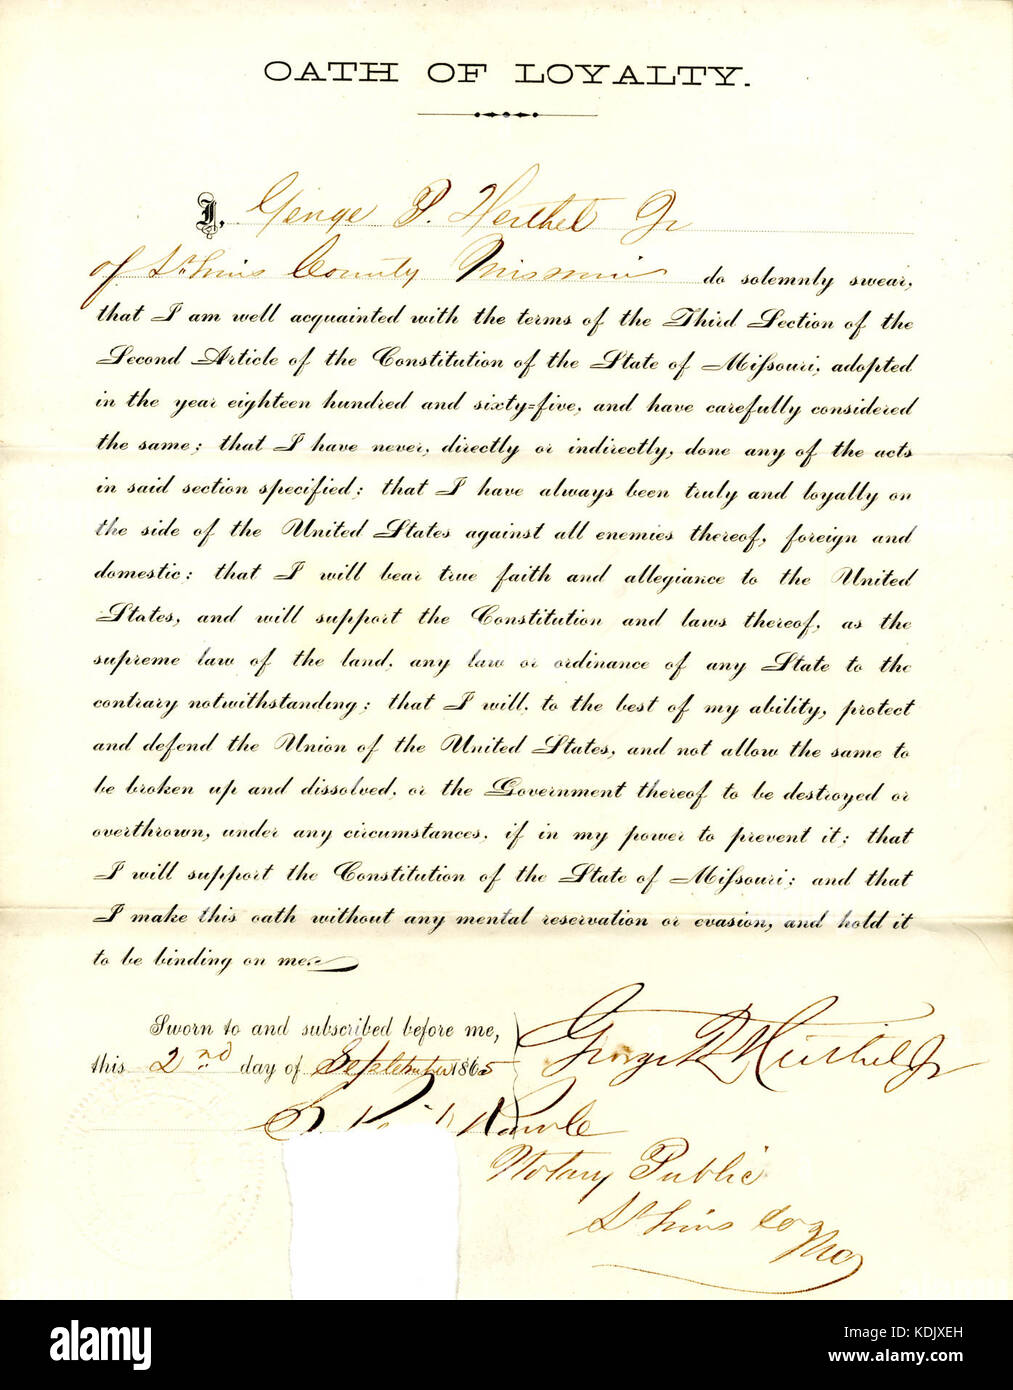 OATH OF LOYALTY.
I, George P. Herthel Jr
of St Louis County Missouri do solemnly swear,
that I am well acquainted with the terms of the Third Section of the
Second Article of the Constitution of the State of Missouri, adopted
in the year eighteen hundred and sixty=five, and have carefully considered
the same; that I have never, directly or indirectly, done any of the acts
in said section specified; that I have always been truly and loyally on
the side of the United States against all enemies thereof, foreign and
domestic; that I will bear true faith and allegiance to the United
States, and will support the Constitution and laws thereof, as the
supreme law of the land, any law or ordinance of any State to the
contrary notwithstanding; that I will, to the best of my ability, protect
and defend the Union of the United States, and not allow the same to
be broken up and dissolved, or the Government thereof to be destroyed or
overthrown, under any circumstances, if in my power to prevent it; that
I will support the Constitution of the State of Missouri; and that
I make this oath without any mental reservation or evasion, and hold it
to be binding on me.
Sworn to and subscribed before me,
this 2nd day of September 1865
George P Herthel Jr
Notary Public
St Louis Co
Mo
alamy
Image ID: KDJXEH
www.alamy.com